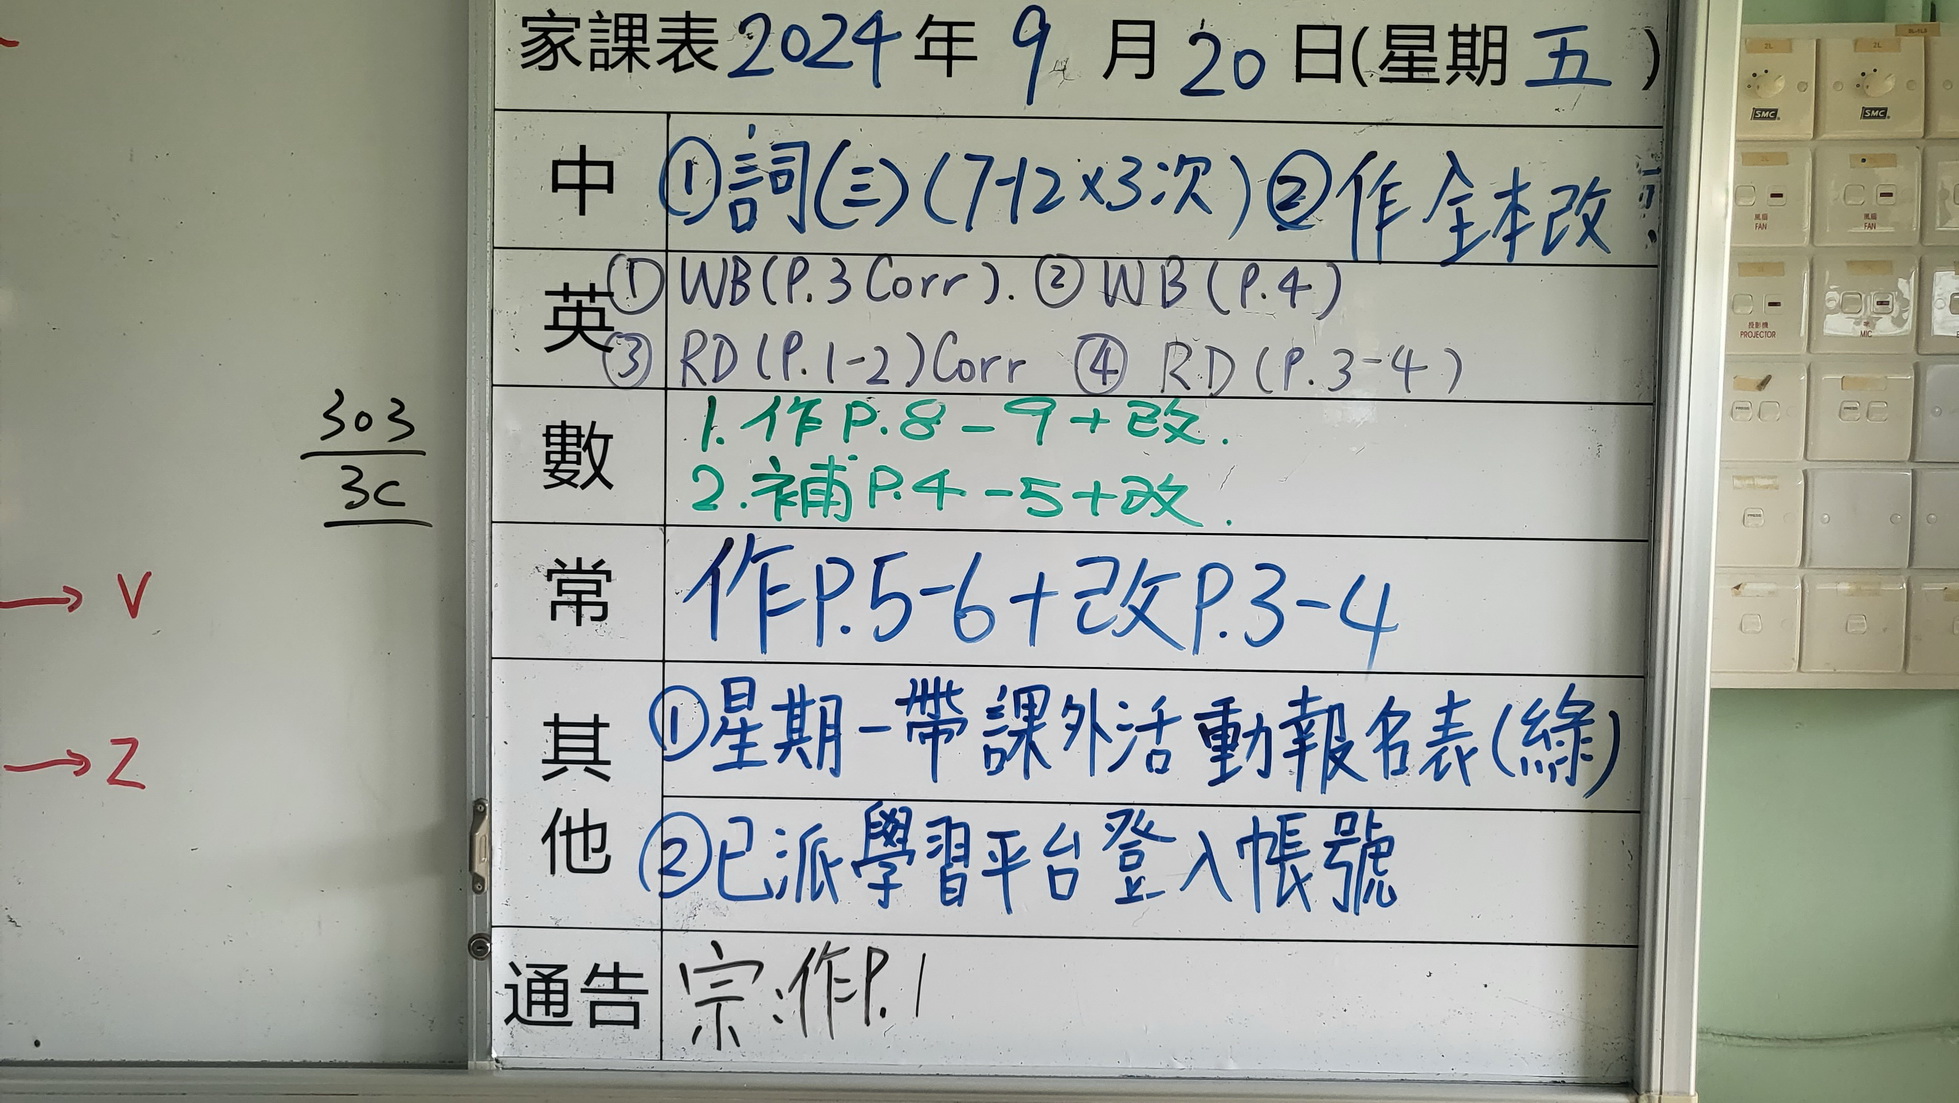 家課表 2024 年 9 月 20 日(星期 五 )
中 ①詞(三)(7-12×3次) ②作 全本改
英 ① WB(P.3 Corr). ② WB (P.4)
③ RD(P.1-2)Corr ④ RD(P.3-4)
數 1. 作P.8-9+改.
2. 補P.4-5+改.
常 作P.5-6+改P.3-4
其他 ①星期一帶課外活動報名表(綠)
②已派學習平台登入帳號
通告 宗:作P.1
303
3C
→ V
→ Z
2L
2L
SMC
SMC
風扇
FAN
風扇
FAN
投影機
PROJECTOR
MIC
PRESS
PRESS
PRESS